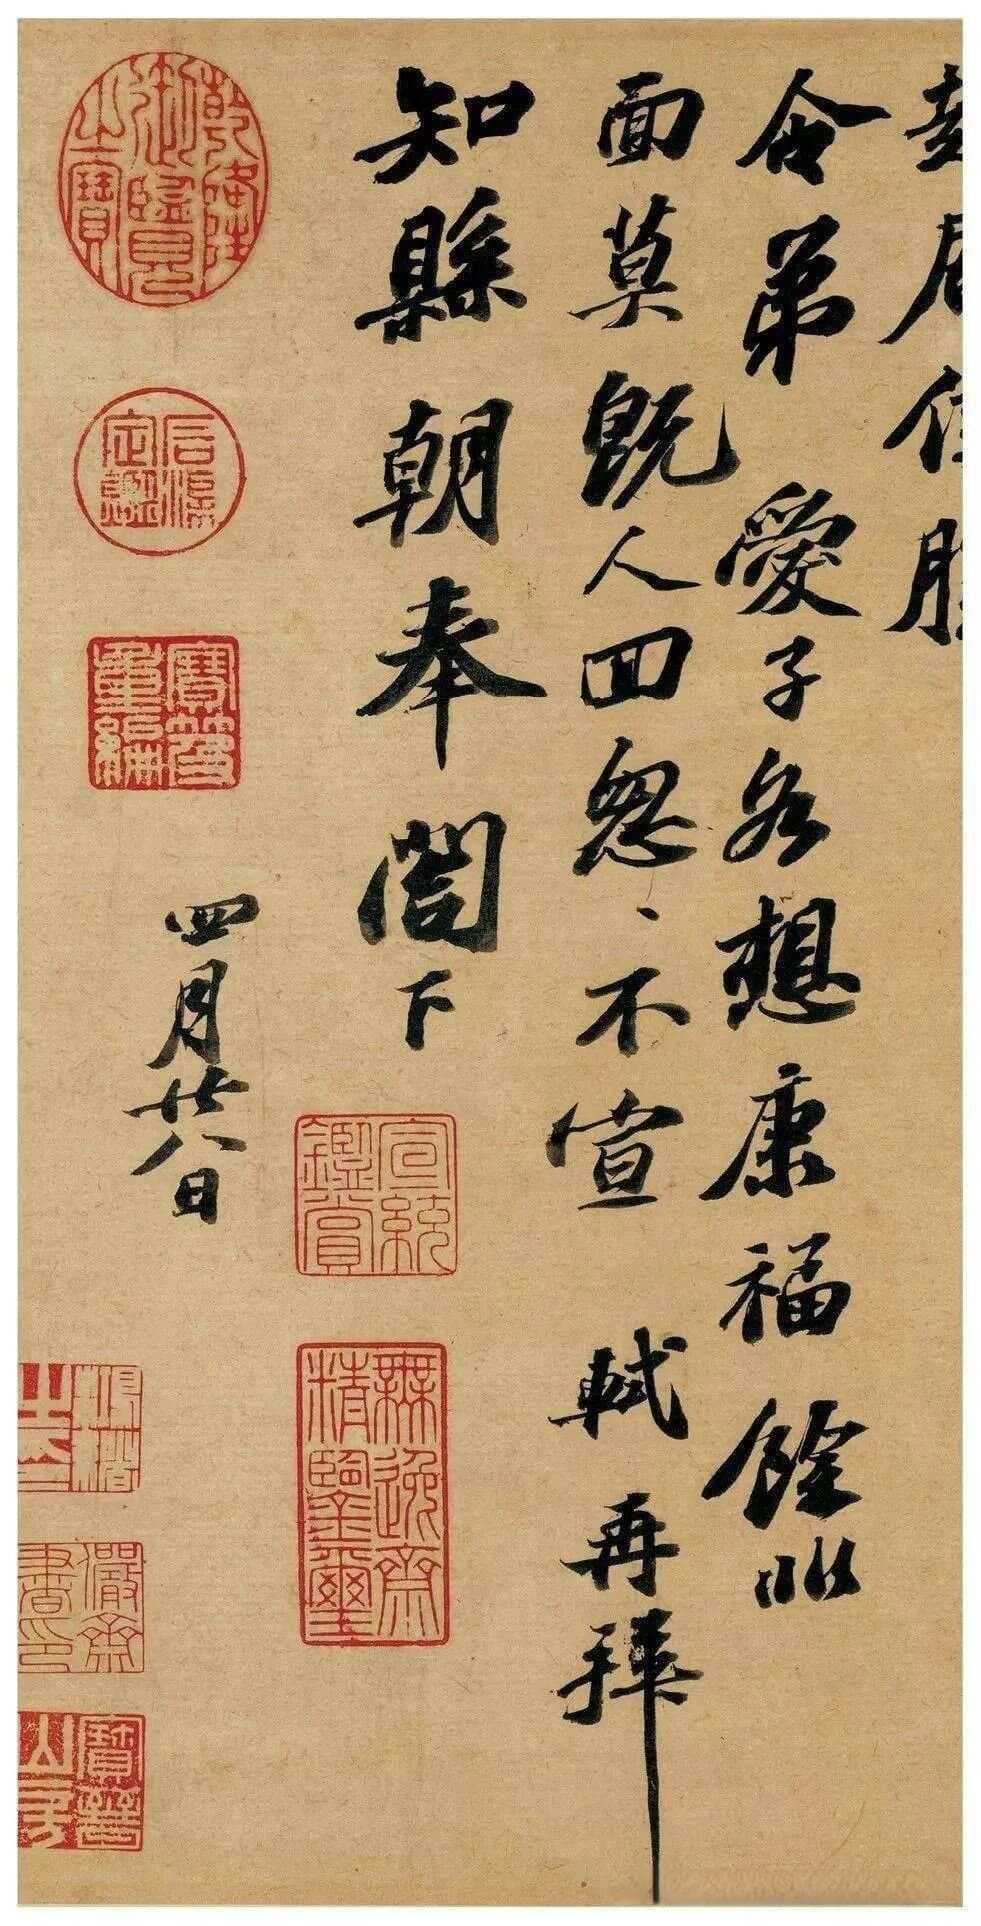 起居佳勝
令弟愛子各想康福餘非
面莫既人回怱、不宣 軾再拜
知縣朝奉閤下
四月廿八日
乾隆御覽之寶
石渠定鑑
寶笈重編
宣統鑑賞
無逸齋精鑒璽